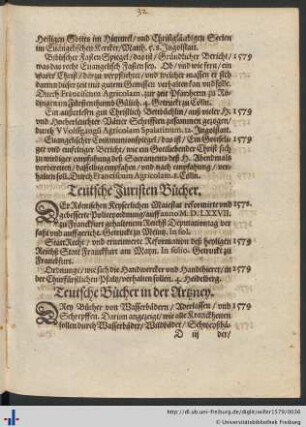 Heiligen Gottes im Himmel/ vnd Christgläubigen Seelen
im Euangelischen Kercker/ Matth. 5. 8. Ingolstatt.
Biblischer Fasten Spiegel/ das ist/ Gründtlicher Bericht/ 1579
was das recht Euangelisch Fasten sey. Ob/ vnd wie fern/ ein
Christ darzu verpflichtet/ vnd welcher massen er sich
darinn dieser zeit mit gutem Gewissen verhalten kan vnd solle.
Durch Franciscum Agricolam, zur zeit Pfarherrn zu
dingen im Fürstenthumb Gülich. 4. Getruckt zu Cöln.
Ein außerlesen gut Christlich Bettbüchlin/ auß vieler H. 1579
vnd Hocherleuchten Vätter Schrifften zusammen gezogen/
durch V Volffgangũ Agricolam Spalatinum. 12. Ingolstatt.
Euangelischer Communionspiegel/ das ist/ Ein 1579
ger vnd einfeltiger Bericht/ wie ein Gottliebender Christ sich
zu wirdiger empfahung deß Sacraments deß H. Abendmals
vorbereiten/ dasselbig empfahen/ vnd nach empfahung/ verhalten
soll. Durch Franciscum Agricolam. 8. Cöln.
Teutsche Juristen Bücher.
DEr Römischen Keyserlichen Maiestat reformirte vnd 1578
gebesserte Policeyordnung/ auff anno M. D. LXXVII.
zu Franckfurt gehaltenem Reichß Deputationtag ver-
faßt vnd auffgericht. Getruckt zu Meintz. In fol.
Statt Recht/ vnd ernewerte Reformation deß heyligen 1579
Reichs Statt Franckfurt am Mayn. In folio. Getruckt zu
Franckfurt.
Ordnunge/ wie sich die Handwercker vnd Handtthierer/ in 1579
der Churfürstlichen Pfaltz/ verhalten sollen. 4. Heidelberg.
Teutsche Bücher in der Artzney.
DRey Bücher von Wasserbädern/ Aderlassen/ vnd 1579
Schrepffen. Darinn angezeigt/ wie alle Kranckheiten
sollen durch Wasserbäder/ Wildbäder/ Schweyßbä-
D iij der/
http://dl.ub.uni-freiburg.de/diglit/willer1579/0036
© Universitätsbibliothek Freiburg